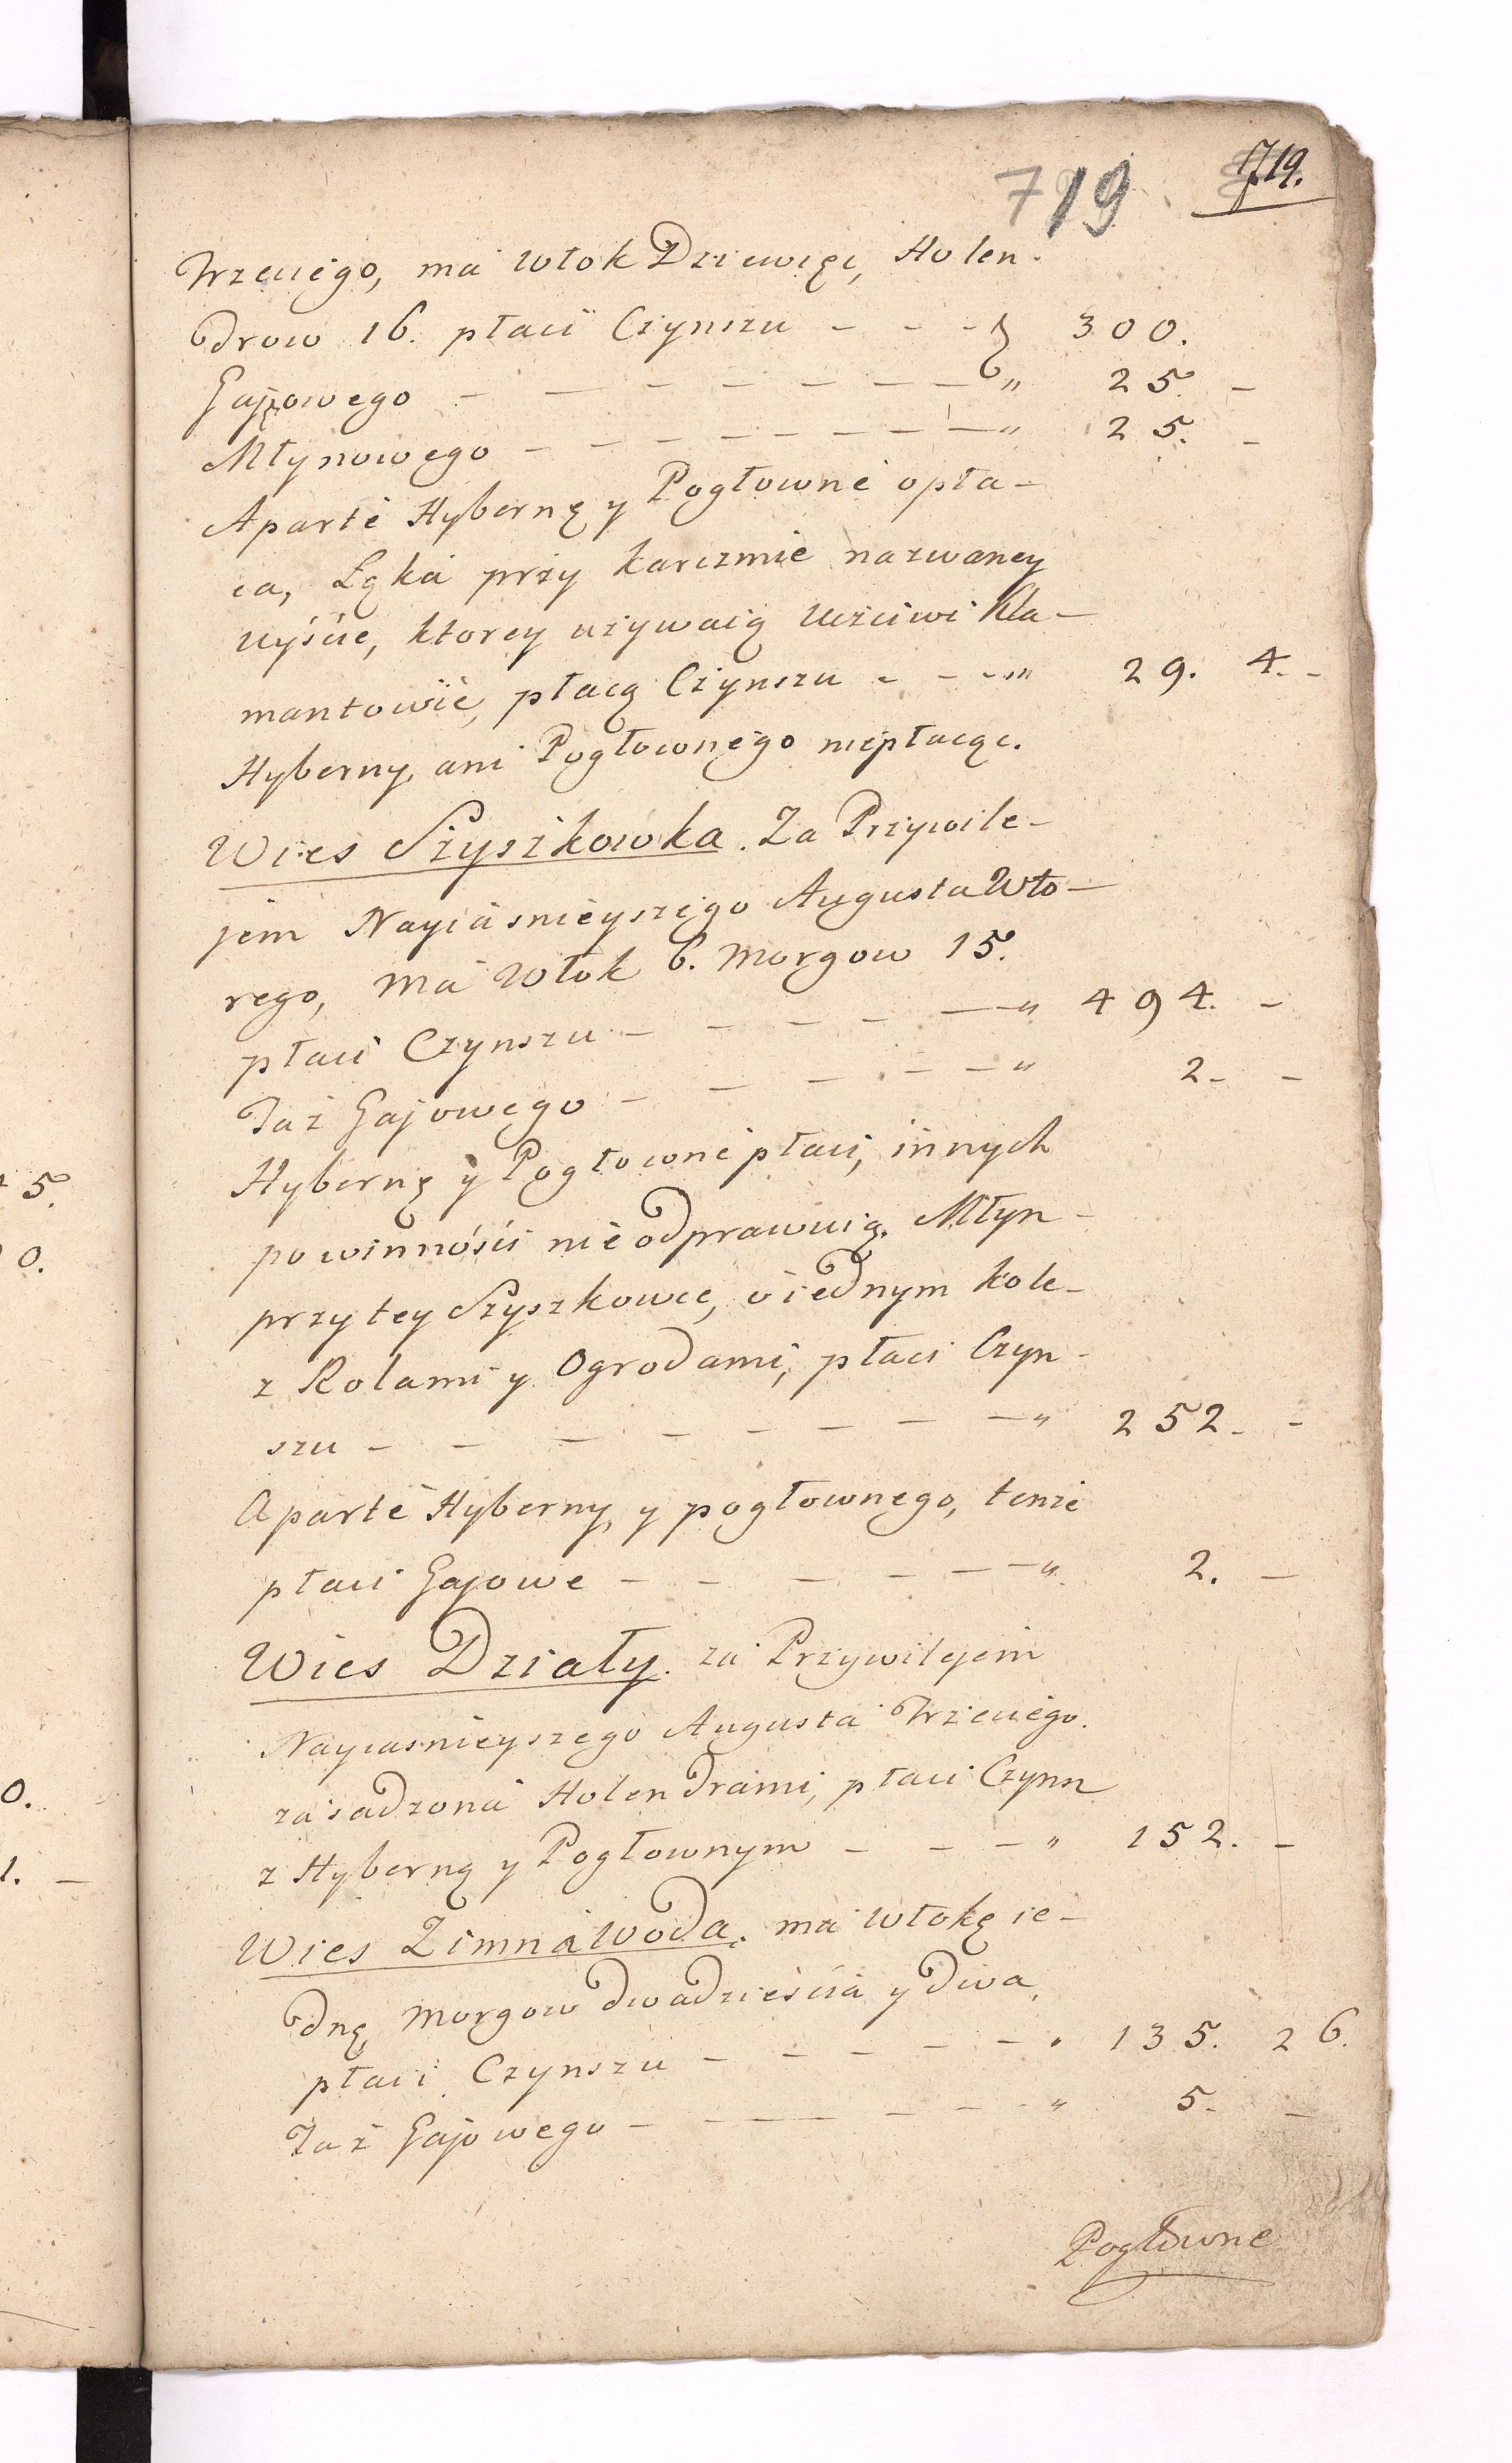 719 719.
Trzeciego, ma Włok Dziewięc, Holen-
drow 16. płaci Czynszu - - - 300.
Gajowego - - - - - - - " 25. -
Młynowego - - - - - - - - " 25. -
Aparte Hybernę y Pogłowne opła-
ca, Łąka przy karczmie nazwaney
Uyście, ktorey używaią Uczciwi Kla-
mantowie, płacą Czynszu - - - " 29. 4. -
Hyberny, ani Pogłownego niepłacąc.
Wies Szyszkowka. Za Przywile-
jem Nayiasnieyszego Augusta Wto-
rego, Ma Włok 6. Morgow 15.
płaci Czynszu - - - - - " 494. -
Taż Gajowego - - - - - - " 2. -
Hybernę y Pogłowne płaci, innych
powinności nie odprawuią. Młyn
przy tey Szyszkowce, o iednym kole-
z Rolami y Ogrodami, płaci Czyn-
szu - - - - - - - - " 252. -
Aparte Hyberny, y pogłownego, tenże
płaci Gajowe - - - - - - " 2. -
Wies Działy. za Przywilejem
Nayiasnieyszego Augusta Trzeciego.
zasadzona Holendrami, płaci Czynsz
z Hyberną y Pogłownym - - - " 152. -
Wies Zimna Woda. ma Włokę ie-
dnę, Morgow dwadzieścia y dwa,
płaci Czynszu - - - - - " 135. 26.
Taż Gajowego - - - - - " 5. -
Pogłowne
5.
0.
0.
1. -